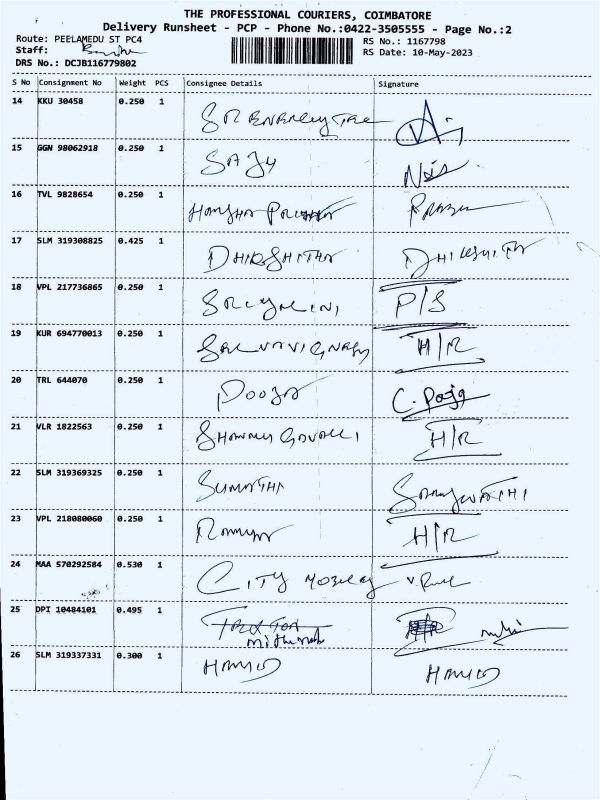 THE PROFESSIONAL COURIERS, COIMBATORE
Delivery Runsheet - PCP - Phone No.:0422-3505555 - Page No.:2
Route: PEELAMEDU ST PC4
RS No.: 1167798
Staff:
RS Date: 10-May-2023
DRS No.: DCJB116779802
S No Consignment No Weight PCS Consignee Details Signature
14 KKU 30458 0.250 1
15 GGN 98062918 0.250 1 SAJU
16 TVL 9828654 0.250 1
17 SLM 319308825 0.425 1 DHIKSHITHA DHIKSHITH
18 VPL 217736865 0.250 1 P/S
19 KUR 694770013 0.250 1 H/R
20 TRL 644070 0.250 1 POOJA C. Pojg
21 VLR 1822563 0.250 1 H/R
22 SLM 319369325 0.250 1 SUMATHI
23 VPL 218080060 0.250 1 RAMYA H/R
24 MAA 570292584 0.530 1 CITY
25 DPI 10484101 0.495 1
26 SLM 319337331 0.300 1 HAMID HAMID